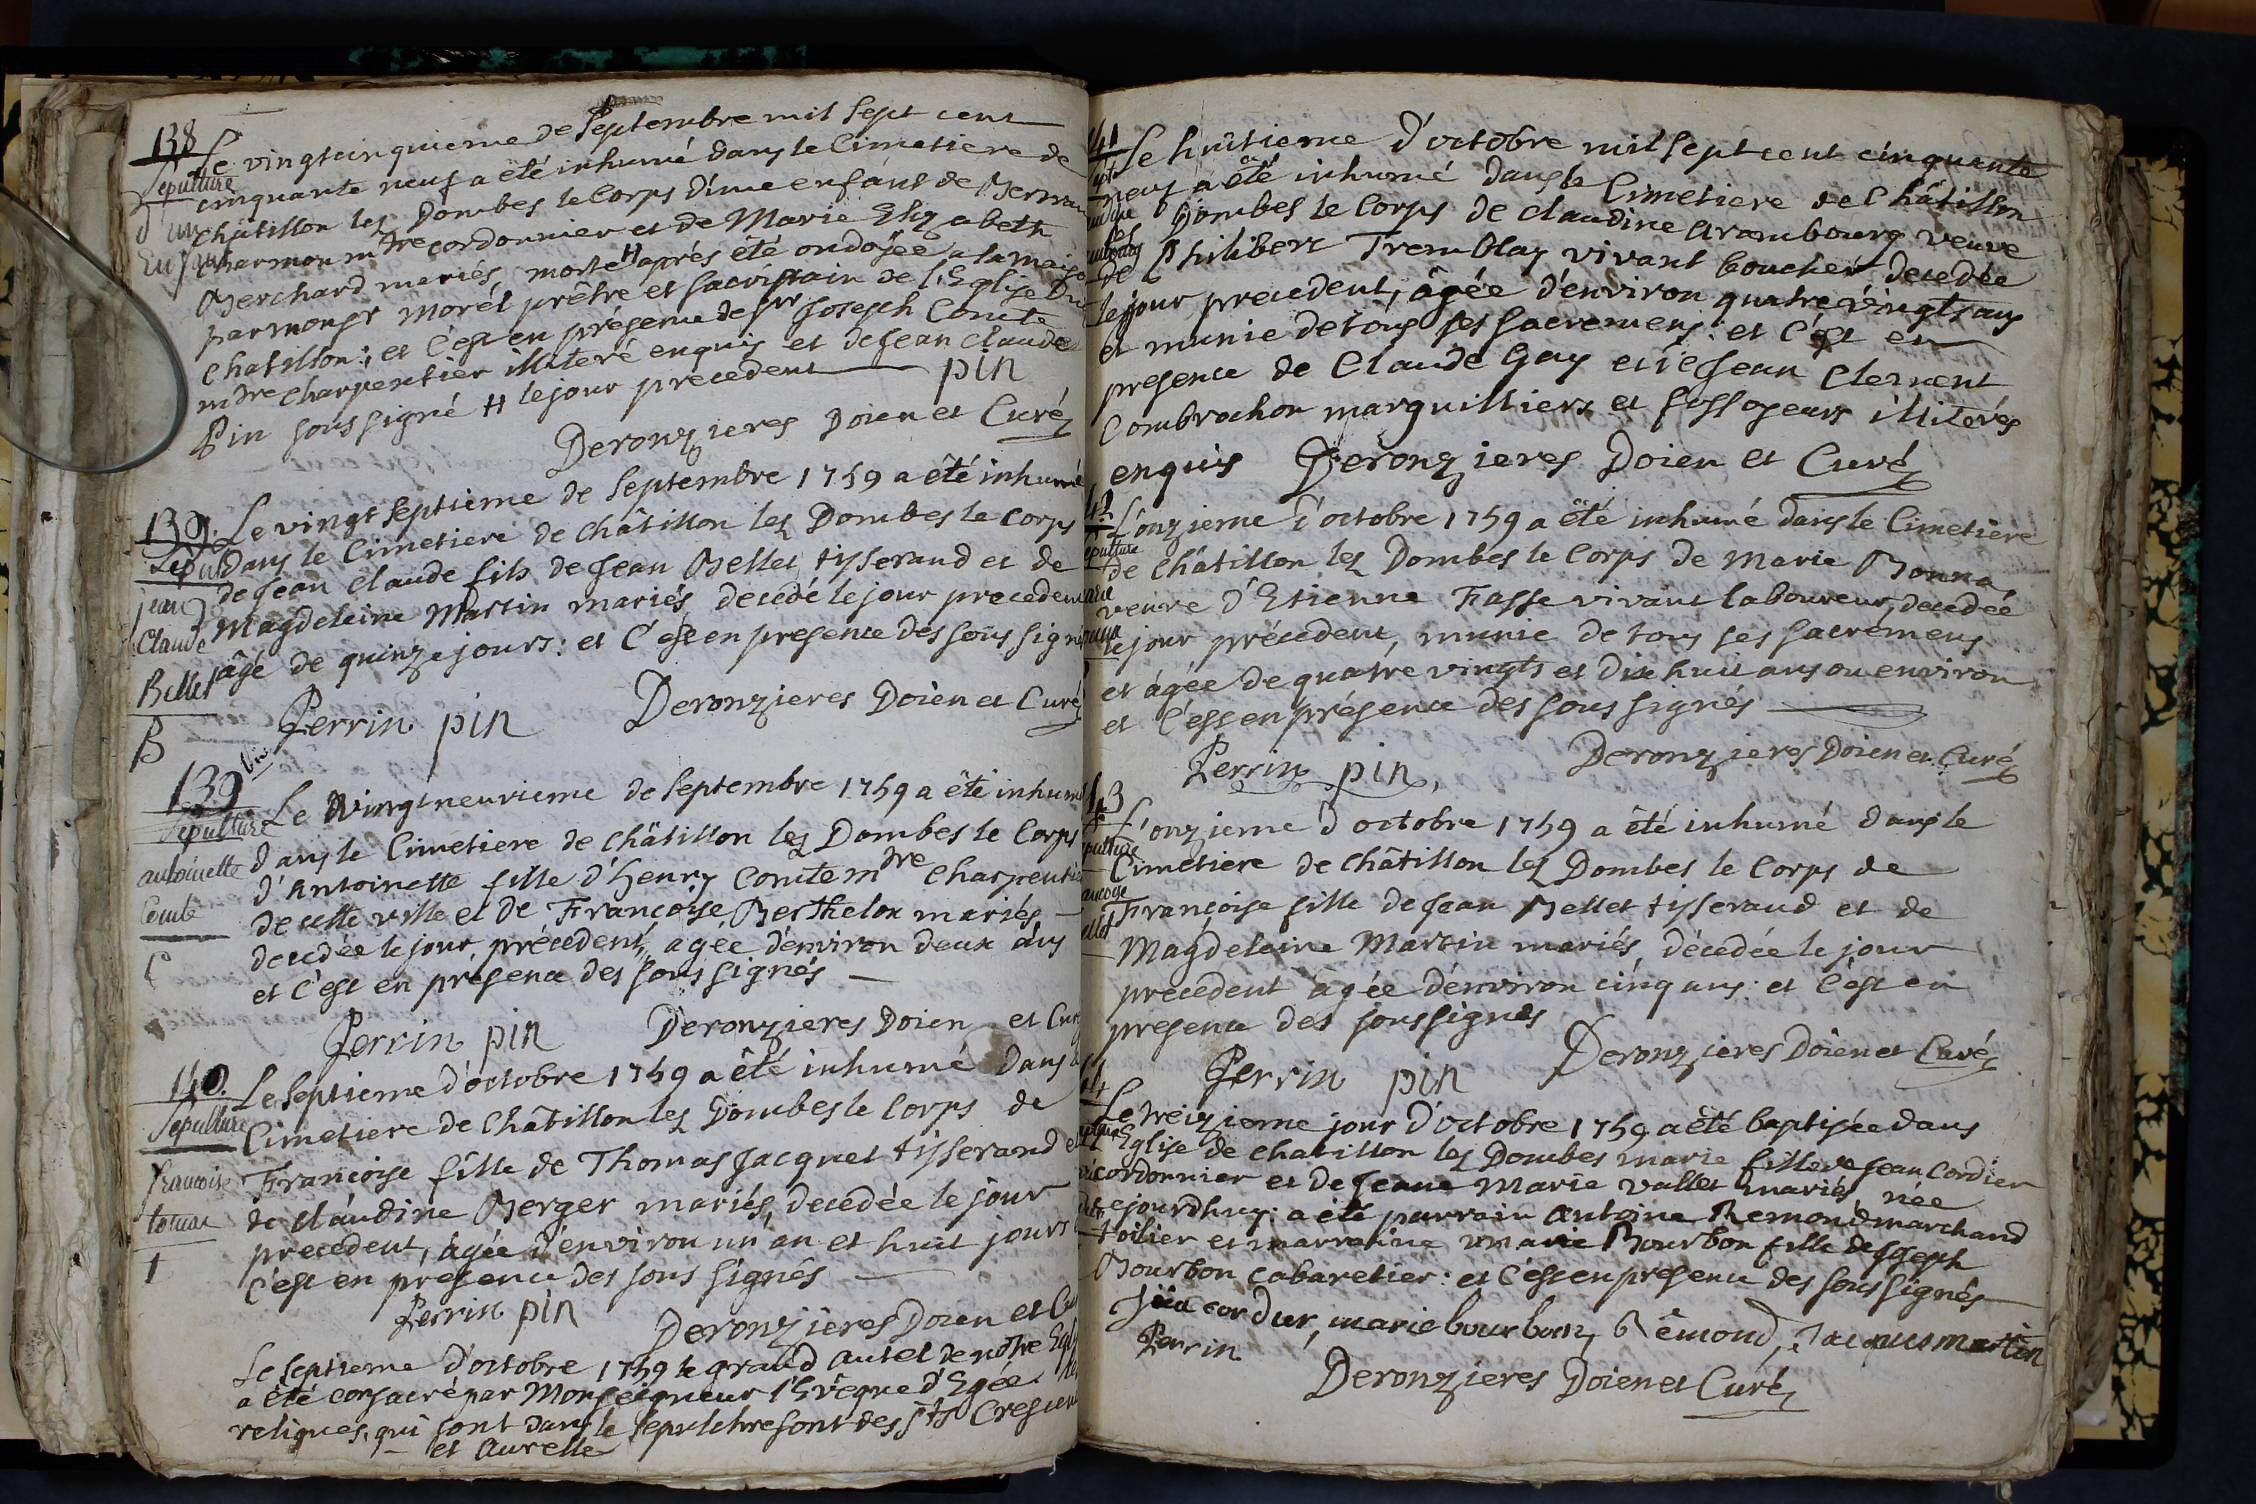 138
Sepulture
d'un
Enfant
Le vingtcinquieme de Septembre mil sept cent
cinquante neuf a êté inhumé dans le Cimetiere de
Châtillon lez Dombes le Corps d'une enfant de
charmon mtre cordonnier et de Marie Elizabeth
Berchard mariés, morte # aprés été ondoÿée a la maison
par monsr Morél prêtre et sacristain de l'Eglise Du
chatillon: et c'est en présence de sr Joseph Comte
mtre Charpentier illiteré enquis et de Jean Claude
Pin soussigné # le jour precedent pin
Deronzieres Doien et Curé
139.
Sepult
jean
Claude
Bellet
B
Le vingt septieme de Septembre 1759 a êté inhumé
dans le Cimetiere de châtillon lez Dombes le Corps
de Jean Claude fils de Jean Bellet tisserand et de
Magdeleine Martin mariés, decedé le jour precedent
âgé de quinze jours: et C'est en presence des sous signés
Perrin pin Deronzieres Doien et Curé
139 bis
Sepulture
antoinette
Comte
C
Le vingt neuvieme de Septembre 1759 a êté inhumé
dans le Cimetiere de châtillon lez Dombes le Corps
d'Antoinette fille d'henry Comte mtre Charpentier
de cette ville et de Françoise Berthelon mariés,
decedée le jour précedent, agée d'environ deux ans
et c'est en présence des sous signés
Perrin pin Deronzieres Doien et Curé
140.
Sepulture
francoise
Le septieme d'octobre 1759 a êté inhumé dans le
Cimetiere de Châtillon lez Dombes le Corps de
Françoise fille de Thomas Jacquet tisserand et
de claudine Berger mariés, decedée le jour
precedent, agée d'environ un an et huit jours
C'est en présence des sous signés
Perrin pin Deronzieres Doien et Cu
Le septieme d'octobre 1759 le grand Autel de nôtre Egl
a été consacré par Monseigneur l'Evêque d'Egée. les
reliques, qui sont dans le sepulchre sont des sts Crescent
et Aurelle
141
Le huitieme d'octobre mil sept cent cinquante
neuf a êté inhumé dans le Cimetiere de Châtillon
les Dombes le Corps de claudine Arambourg veuve
de Philibert Tremblay vivant boucher decedée
le jour precedent, âgée d'environ quatre vingts ans
et munie de tous ses sacremens: et C'est en
presence de Claude Gay et de Jean Clement
Combrochon marguilliers et fossoyeurs illiterés
enquis Deronzieres Doien et Curé
42
epulture
L'onzieme d'octobre 1759 a êté inhumé dans le Cimetiere
de châtillon lez Dombes le Corps de Marie Bonna
veuve d'Etienne Fasse vivant laboureur, decedée
le jour précedent, munie de tous ses sacremens
et âgée de quatre vingts et dix huit ans ou environ
et C'est en présence des sous signés
Perrin pin, Deronzieres Doien et Curé
43
epulture
ancoise
ellet
L'onzieme d'octobre 1759 a êté inhumé dans le
Cimetiere de châtillon lez Dombes le Corps de
Françoise fille de Jean Bellet tisserand et de
Magdeleine Martin mariés, décedée le jour
precedent agée d'environ cinq ans: et C'est en
presence des sous signés
Perrin pin Deronzieres Doien et Curé
Le treizieme jour d'octobre 1759 a êté baptisée dans
l'Eglise de chatillon lez Dombes marie fille de Jean Cordier
cordonnier et de Jeane Marie Vallet mariés, née
cejourdhuy: a été parrain Antoine Remond marchand
toilier et marraine Marie Bourbon fille de Joseph
Bourbon cabaretier: et C'est en presence des sous signés
Jean cordier, marie bourbon, Rémond, Jacques Martin
Perrin
Deronzieres Doien et Curé